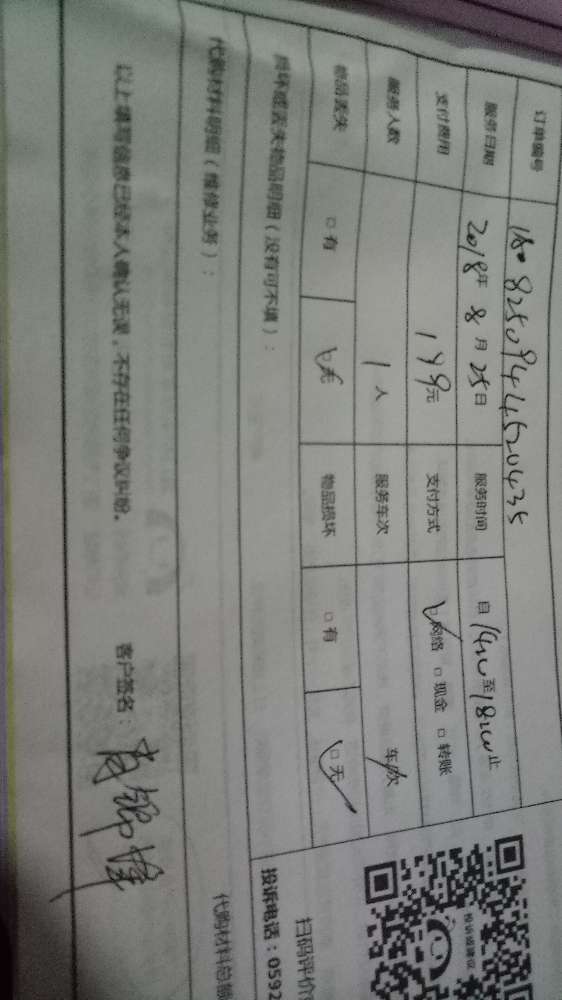 订单编号 180825094445520435
服务日期 2018年 8月 25日 服务时间 自 14:00 至 18:00 止
支付费用 199元 支付方式 □网络 □现金 □转账
服务人数 1人 服务车次 车/次
物品丢失 □有 □无 物品损坏 □有 □无
损坏或丢失物品明细（没有可不填）：
代购材料明细（维修业务）： 代购材料总额
以上填写信息已经本人确认无误，不存在任何争议纠纷。 客户签名：
投诉或建议
扫码评价
投诉电话：0592